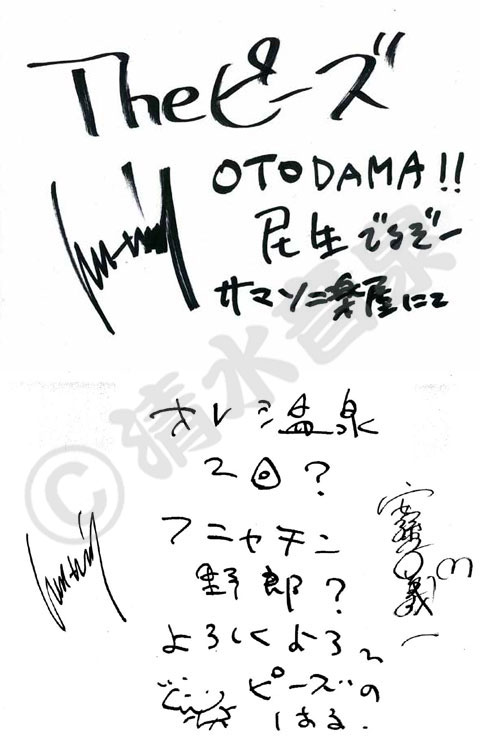 Theピーズ
OTODAMA!!
民生でるぞー
サマソニ楽屋にて
©清水音泉
オレシ温泉
2回?
フニャチン
野郎?
よろしくよろ
ピーズの
はる.
義一